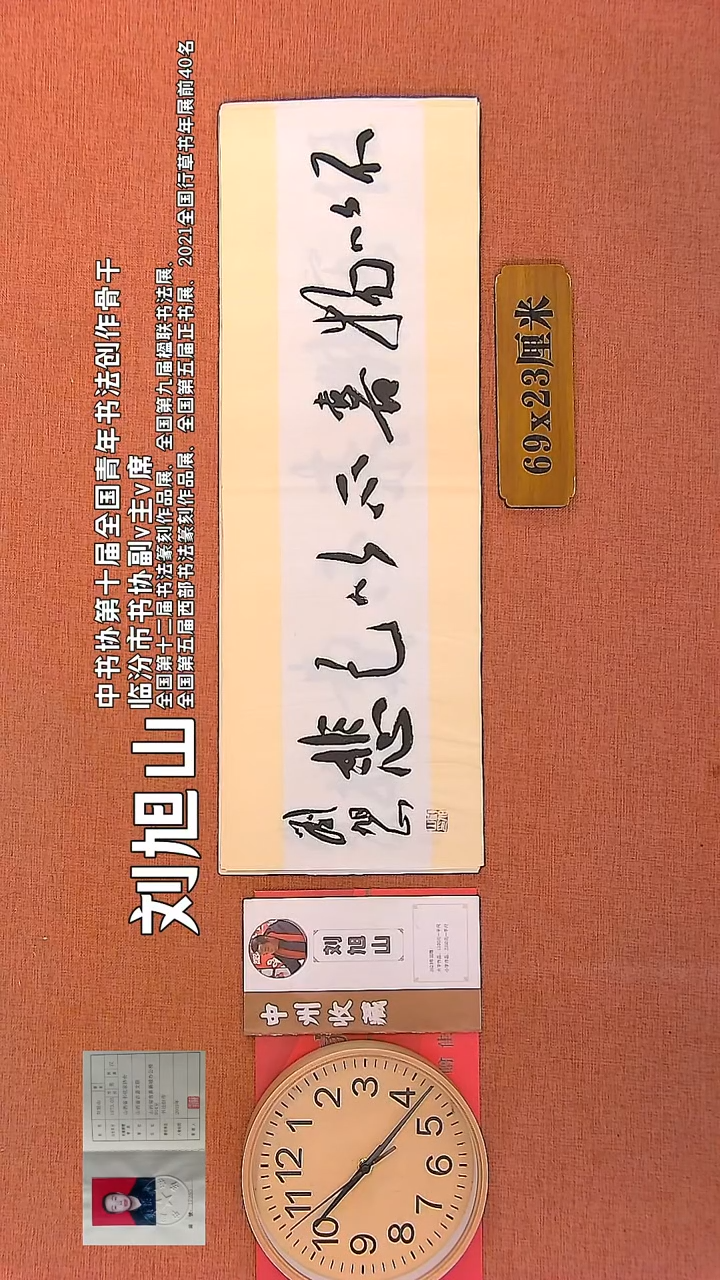 中书协第十届全国青年书法创作骨干
临汾市书协副v主v席
全国第十二届书法篆刻作品展、全国第九届楹联书法展、
全国第五届西部书法篆刻作品展、全国第五届正书展、2021全国行草书年展前40名
刘旭山
不以物喜不以己悲
刘旭山
69x23厘米
刘旭山
中州收藏
12
1
2
3
4
5
6
7
8
9
10
11